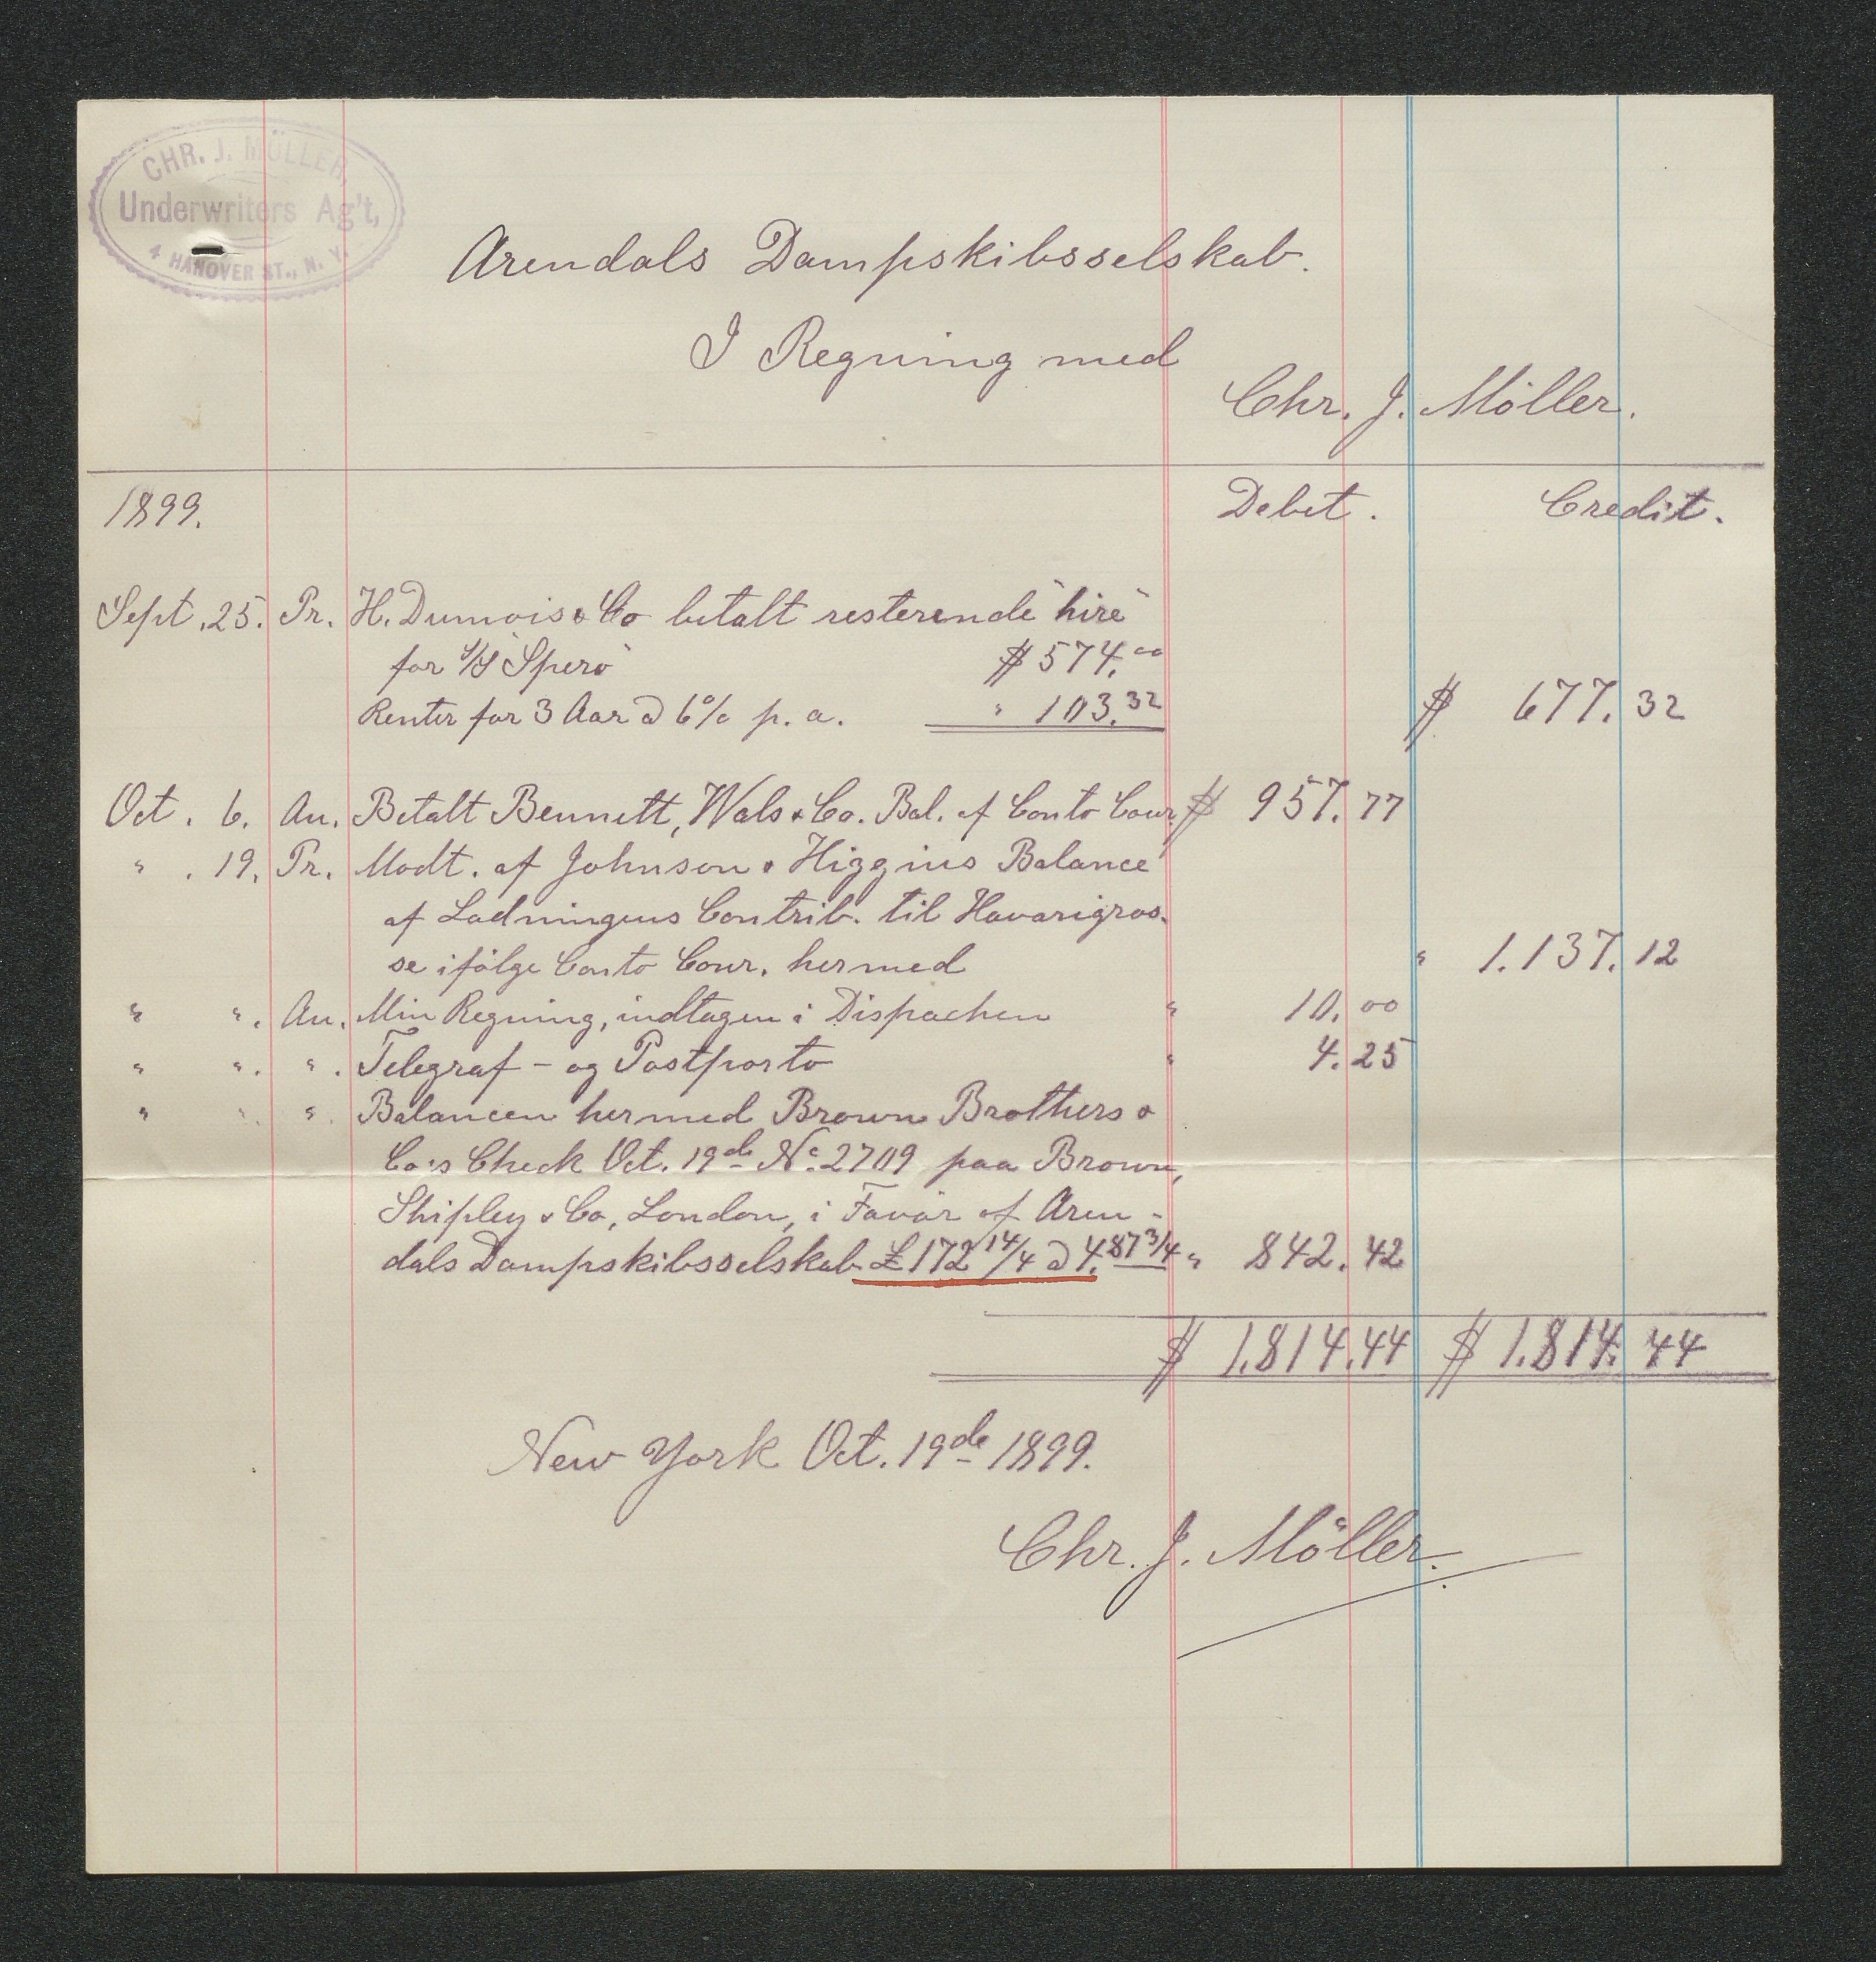 CHR. J. MÖLLER,
Underwriters Ag't,
4 HANOVER ST., N. Y.
Arendals Dampskibsselskab.
I Regning med
Chr. J. Möller.
1899. Debet. Credit.
Sept. 25. Pr. H. Dumois & Co betalt resterende "hire"
for S/S "Spero" $ 574.00
Renter for 3 Aar à 6% p. a. " 103.32 $ 677.32
Oct. 6. An. Betalt Bennett, Wals & Co. Bal. af Conto Cour. $ 957.77
" . 19. Pr. Modt. af Johnson & Higgins Balance
af Ladningens Contrib. til Havarigros-
se ifölge Conto Cour. hermed " 1.137.12
" ". An. Min Regning, indtagen i Dispachen " 10.00
" ". ". Telegraf- og Postporto " 4.25
" ". ". Balancen hermed Brown Brothers &
Co's Check Oct. 19de No. 2709 paa Brown,
Shipley & Co, London, i Favör af Aren-
dals Dampskibsselskab £172 14/4 à 4.87 3/4 " 842.42
$ 1.814.44 $ 1.814.44
New York Oct. 19de 1899.
Chr. J. Möller.